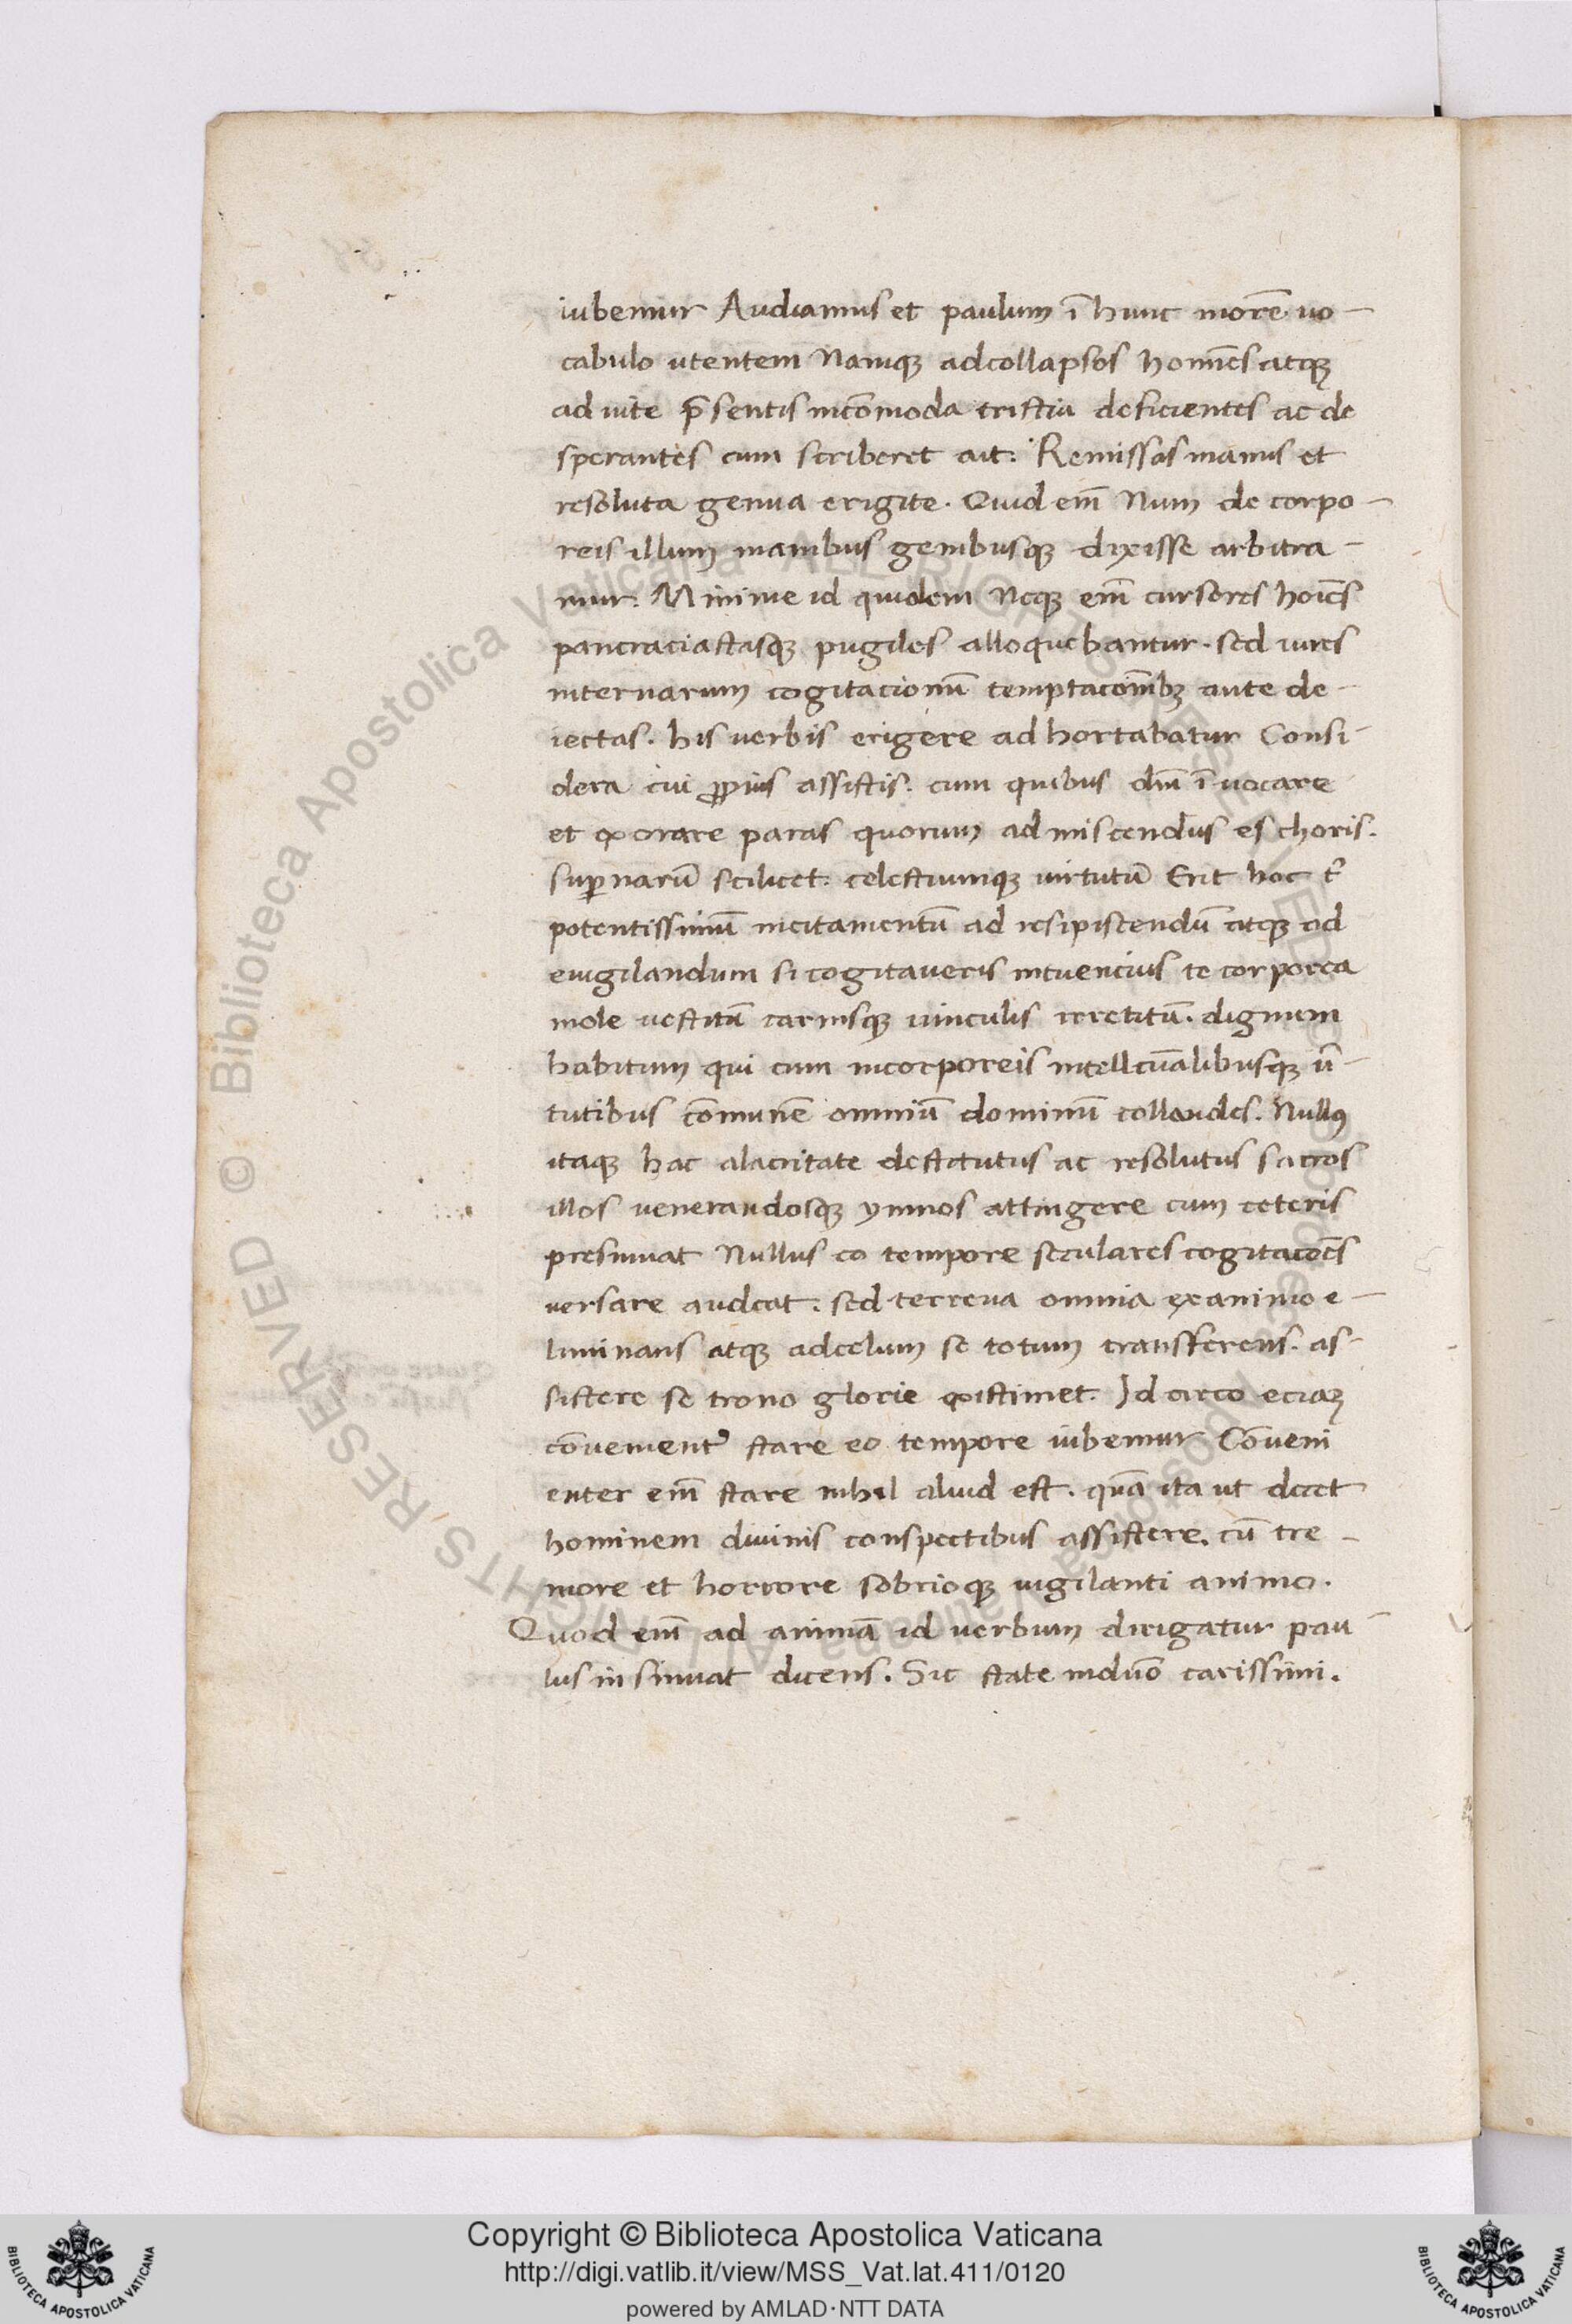 iubemur Audiamus et paulum ī hunc morē uo-
cabulo utentem Namqꝫ ad collapsos homīes atqꝫ
ad uite p̄sentis incōmoda tristia deficientes ac de
sperantes cum scriberet ait. Remissas manus et
resoluta genua erigite. Quid em̄ Num de corpo-
reis illum manibus genibusqꝫ dixisse arbitra-
mur. Minime id quidem Neqꝫ em̄ cursores hoīes
pancraciastasqꝫ pugiles alloquebantur. sed uires
internarum cogitacionū temptacoīnibꝫ ante de-
iectas. his uerbis erigere ad hortabatur Consi-
dera cui ꝓpius assistis. cum quibus dm̄ ī uocare
et exorare paras quorum ad miscendus es choris.
suꝑnarū scilicet. celestiumqꝫ uirtutū Erit hoc t'
potentissimū incitamentū ad resipiscendū atqꝫ ad
euigilandum si cogitaueris intuencius te corporea
mole uestitū carnisqꝫ uinculis irretitū. dignum
habitum qui cum incorporeis intellectualibusqꝫ uir-
tutibus cōmunē omniū dominū collaudes. Nullꝰ
itaqꝫ hac alacritate destitutus ac resolutus sacros
illos venerandosqꝫ ymnos attingere cum ceteris
presumat Nullus eo tempore seculares cogitacōes
versare audeat. sed terrena omnia ex animo e-
liminans atqꝫ ad celum se totum transferens. as-
sistere se trono glorie existimet. Id circo eciaꝫ
cōuenient' stare eo tempore iubemur Cōueni
enter em̄ stare nihil aliud est. quā ita ut decet
hominem diuinis conspectibus assistere. cū tre-
more et horrore sobrioqꝫ uigilanti animo.
Quod em̄ ad animā id uerbum dirigatur pau-
lus insinuat dicens. Sic state in dn̄o carissimi.
Copyright © Biblioteca Apostolica Vaticana
http://digi.vatlib.it/view/MSS_Vat.lat.411/0120
powered by AMLAD·NTT DATA